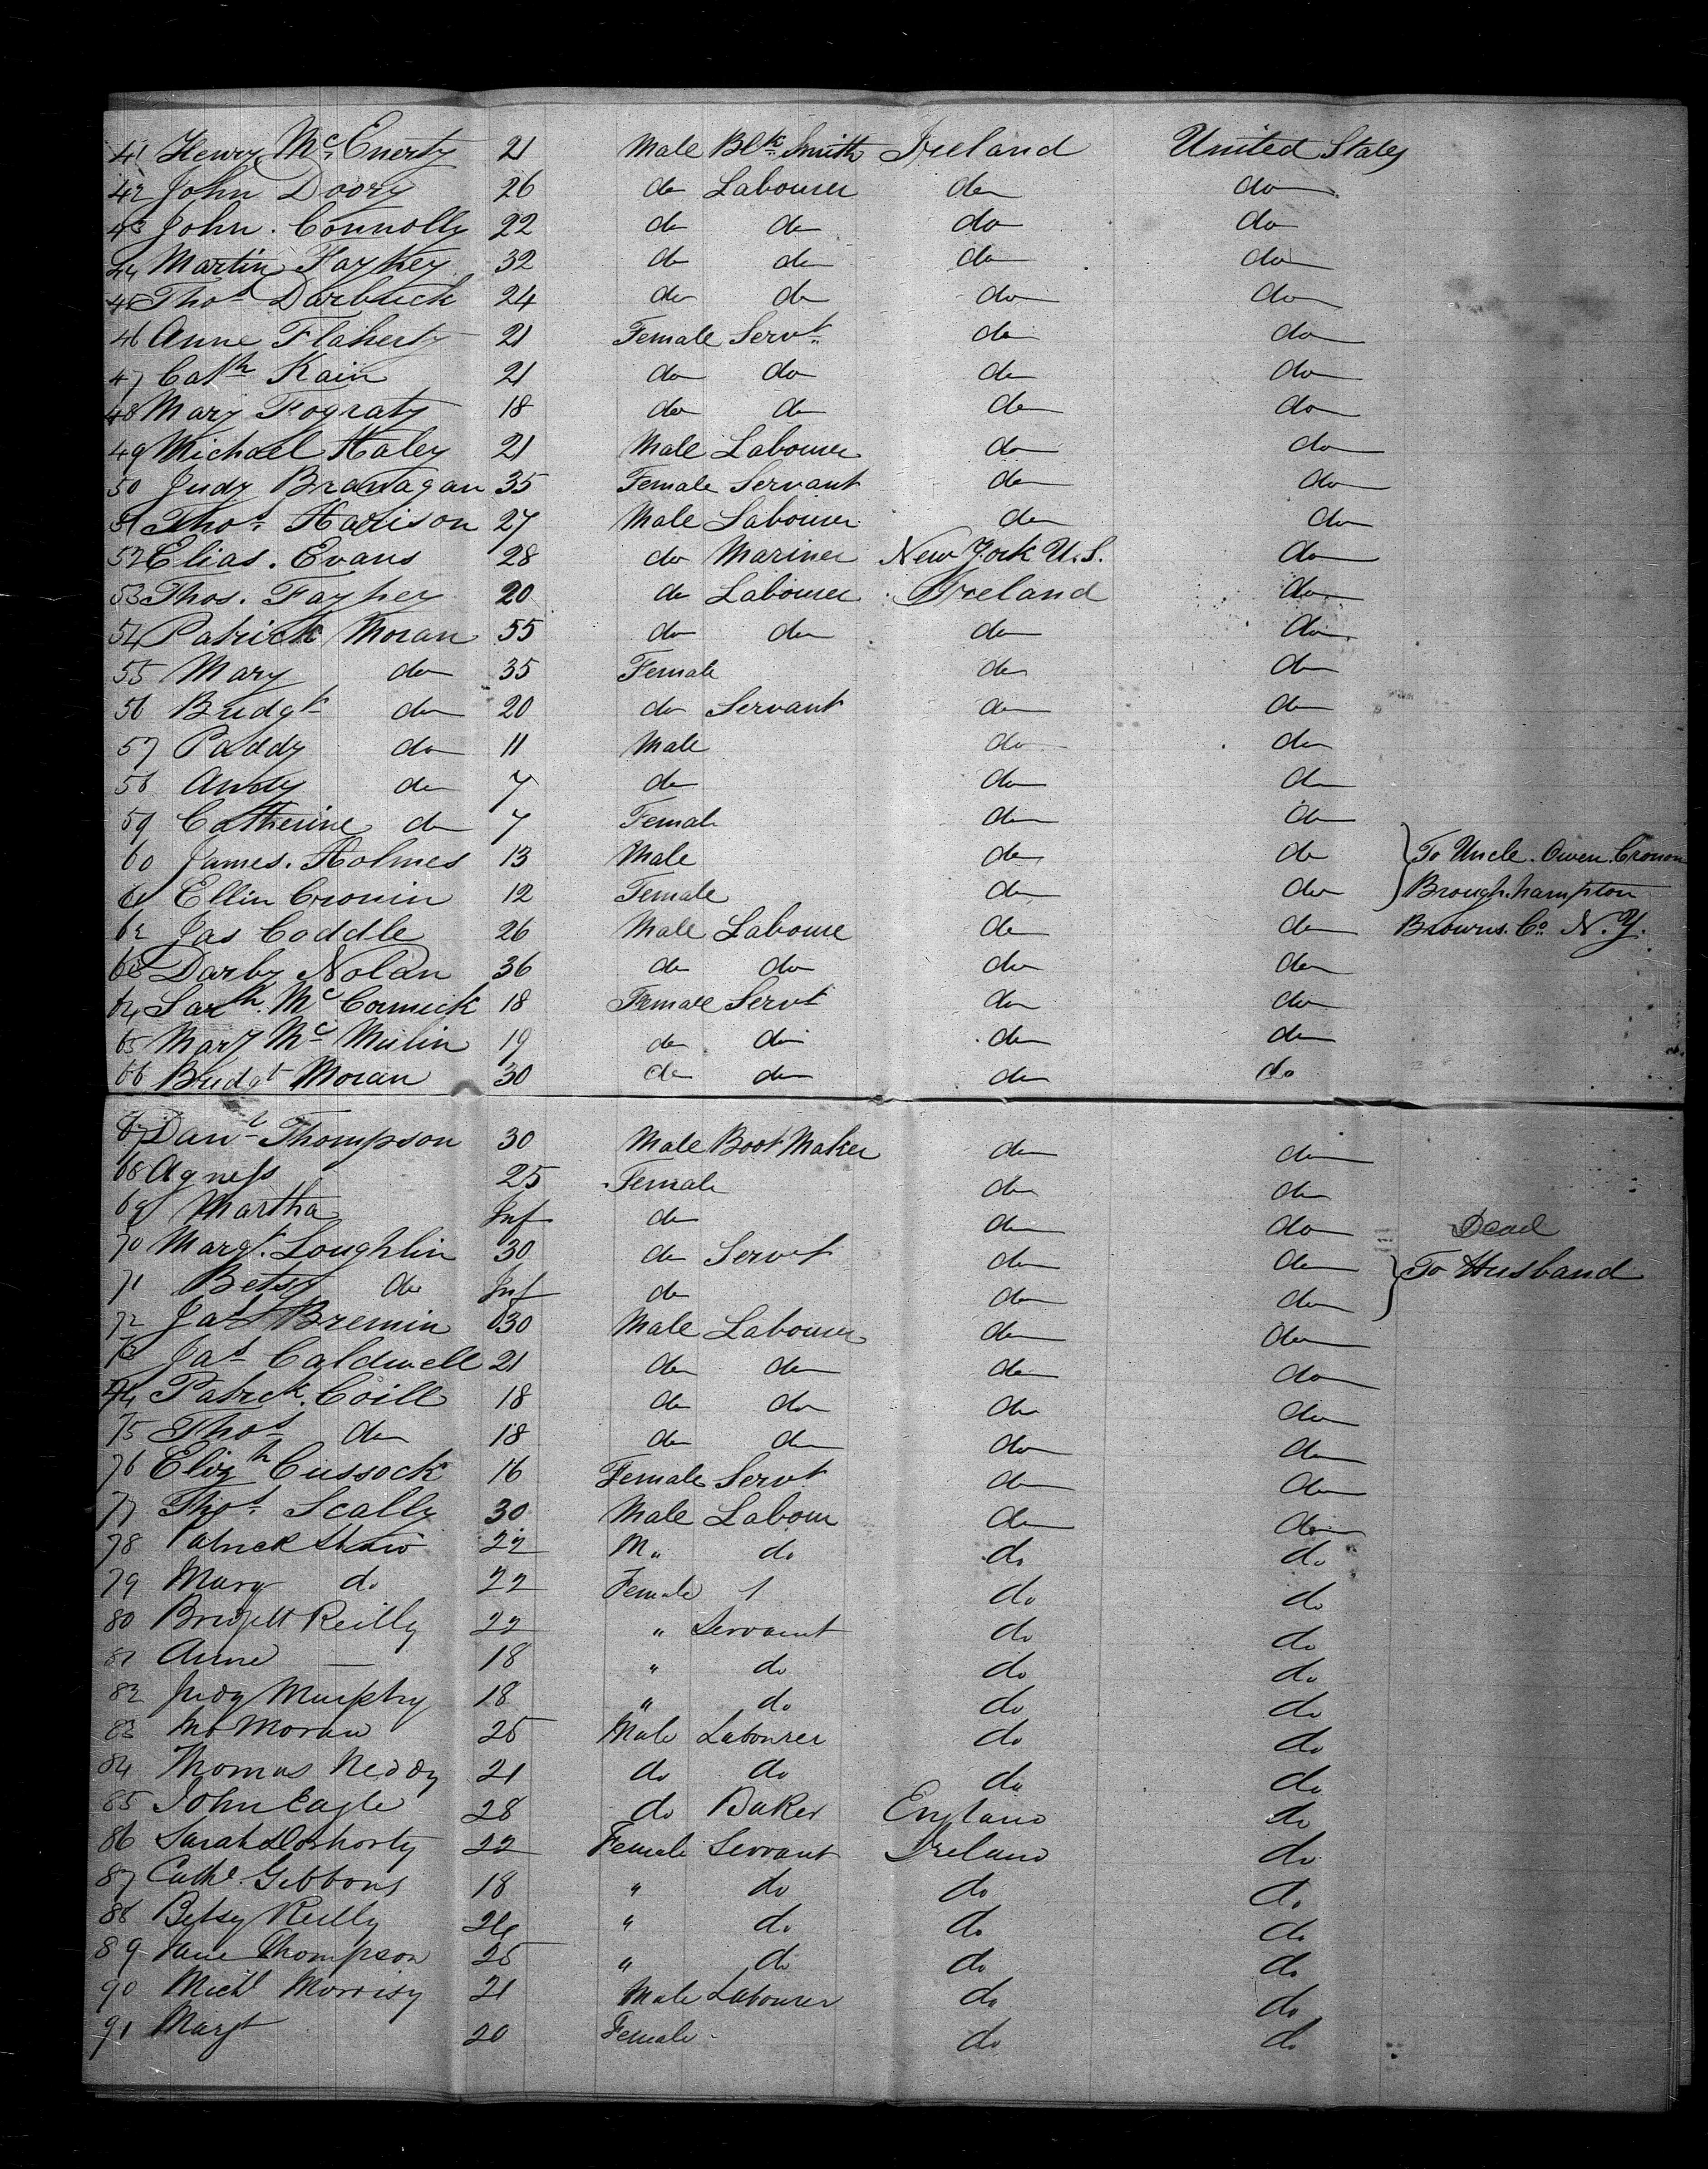 41 Henry Mc Enerty 21 Male Blk Smith Ireland United States
42 John Doory 26 do Labourer do do
43 John Connolly 22 do do do do
44 Martin Fayhey 32 do do do do
45 Thos Darbuck 24 do do do do
46 Anne Flaherty 21 Female Servt do do
47 Cath Kain 21 do do do do
48 Mary Fograty 18 do do do do
49 Michael Haley 21 Male Labourer do do
50 Judy Branagan 35 Female Servant do do
51 Thos Harison 27 Male Labourer do do
52 Elias Evans 28 do Mariner New York U.S. do
53 Thos. Fayhey 20 do Labourer Ireland do
54 Patrick Moran 55 do do do do
55 Mary do 35 Female do do
56 Bridgt do 20 do Servant do do
57 Paddy do 11 Male do do
58 Andy do 7 do do do
59 Catherine do 7 Female do do
60 James Holmes 13 Male do do To Uncle Owen Cronon
61 Ellin Cronin 12 Female do do Brough.hampton
62 Jas Coddle 26 Male Laboure do do Browns Co N.Y.
63 Darby Nolan 36 do do do do
64 Sarh Mc Cormick 18 Female Servt do do
65 Mary Mc Mulin 19 do do do do
66 Bridgt Moran 30 do do do do
67 Danl Thompson 30 Male Boot Maker do do
68 Agness 25 Female do do
69 Martha Inf do do do Dead
70 Margt Loughlin 30 do Servt do do To Husband
71 Betsy do Inf do do do
72 Jas Bremin 30 Male Labourer do do
73 Jas Caldwell 21 do do do do
74 Patrck Coill 18 do do do do
75 Thos do 18 do do do do
76 Elizh Cussock 16 Female Servt do do
77 Thos Scally 30 Male Labour do do
78 Patrick Shaw 22 M" do do do
79 Mary do 22 Female do do
80 Bridgett Reilly 22 " Servant do do
81 Anne — 18 " do do do
82 Judy Murphy 18 " do do do
83 Moran 25 Male Labourer do do
84 Thomas Neddy 21 do do do do
85 John Eagle 28 do Baker England do
86 Sarah Dohorty 22 Female Servant Ireland do
87 Cathe Gibbons 18 " do do do
88 Betsy Reilly 24 " do do do
89 Jane Thompson 25 " do do do
90 Michl Morrisy 21 Male Labourer do do
91 Margt 20 Female do do